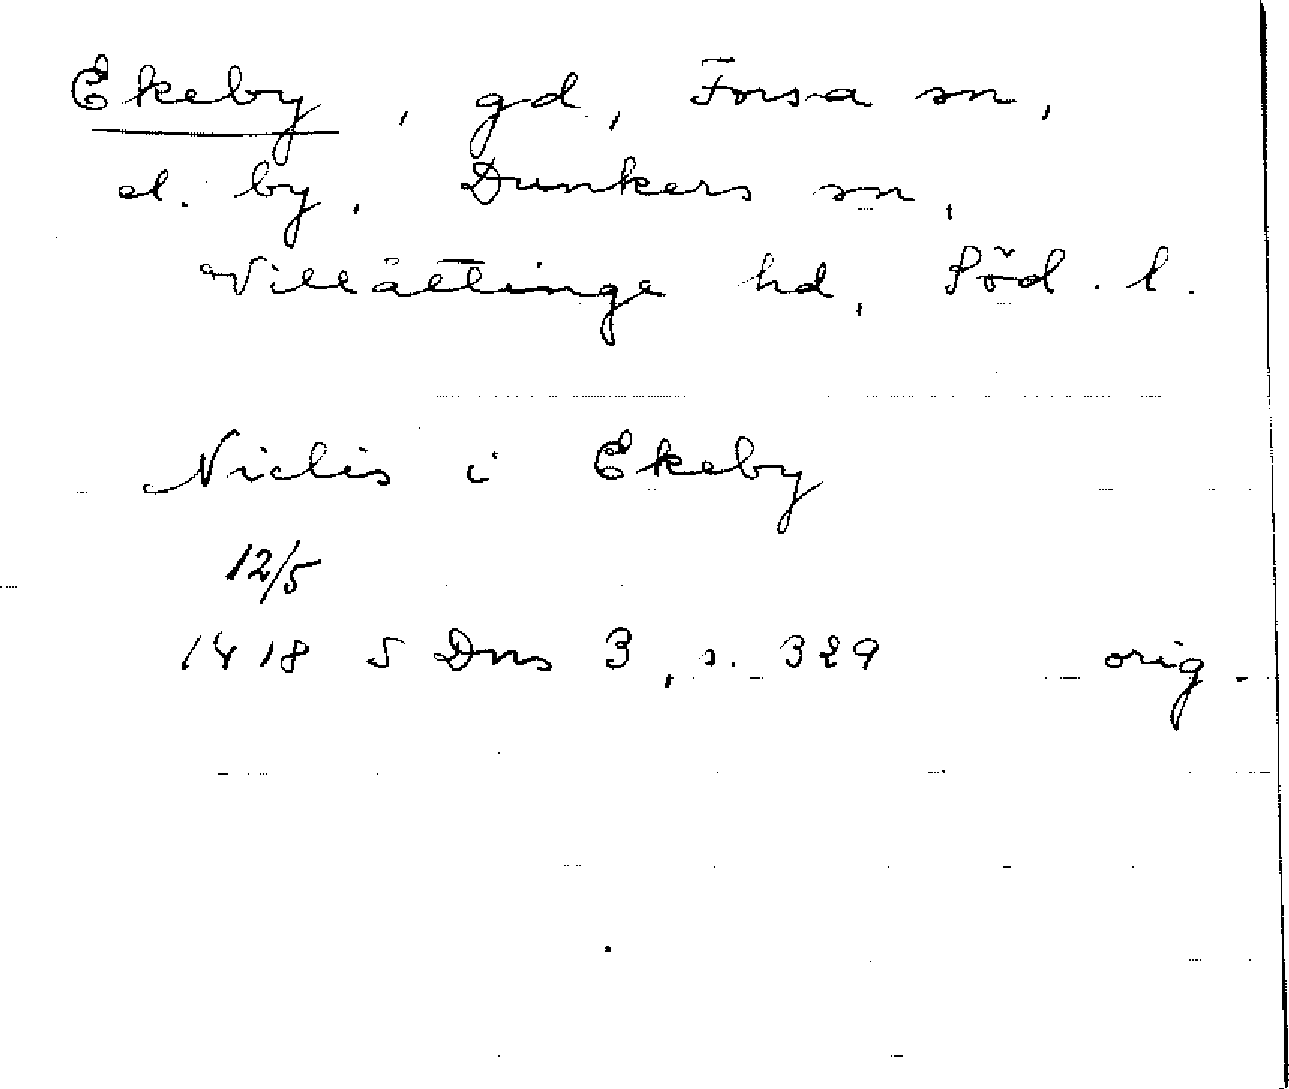 Ekeby, gd, Forsa sn,
el. by, Dunkers sn,
Villåttinge hd, Söd. l.
Niclis i Ekeby
12/5
1418 SDns 3, s. 329 orig.